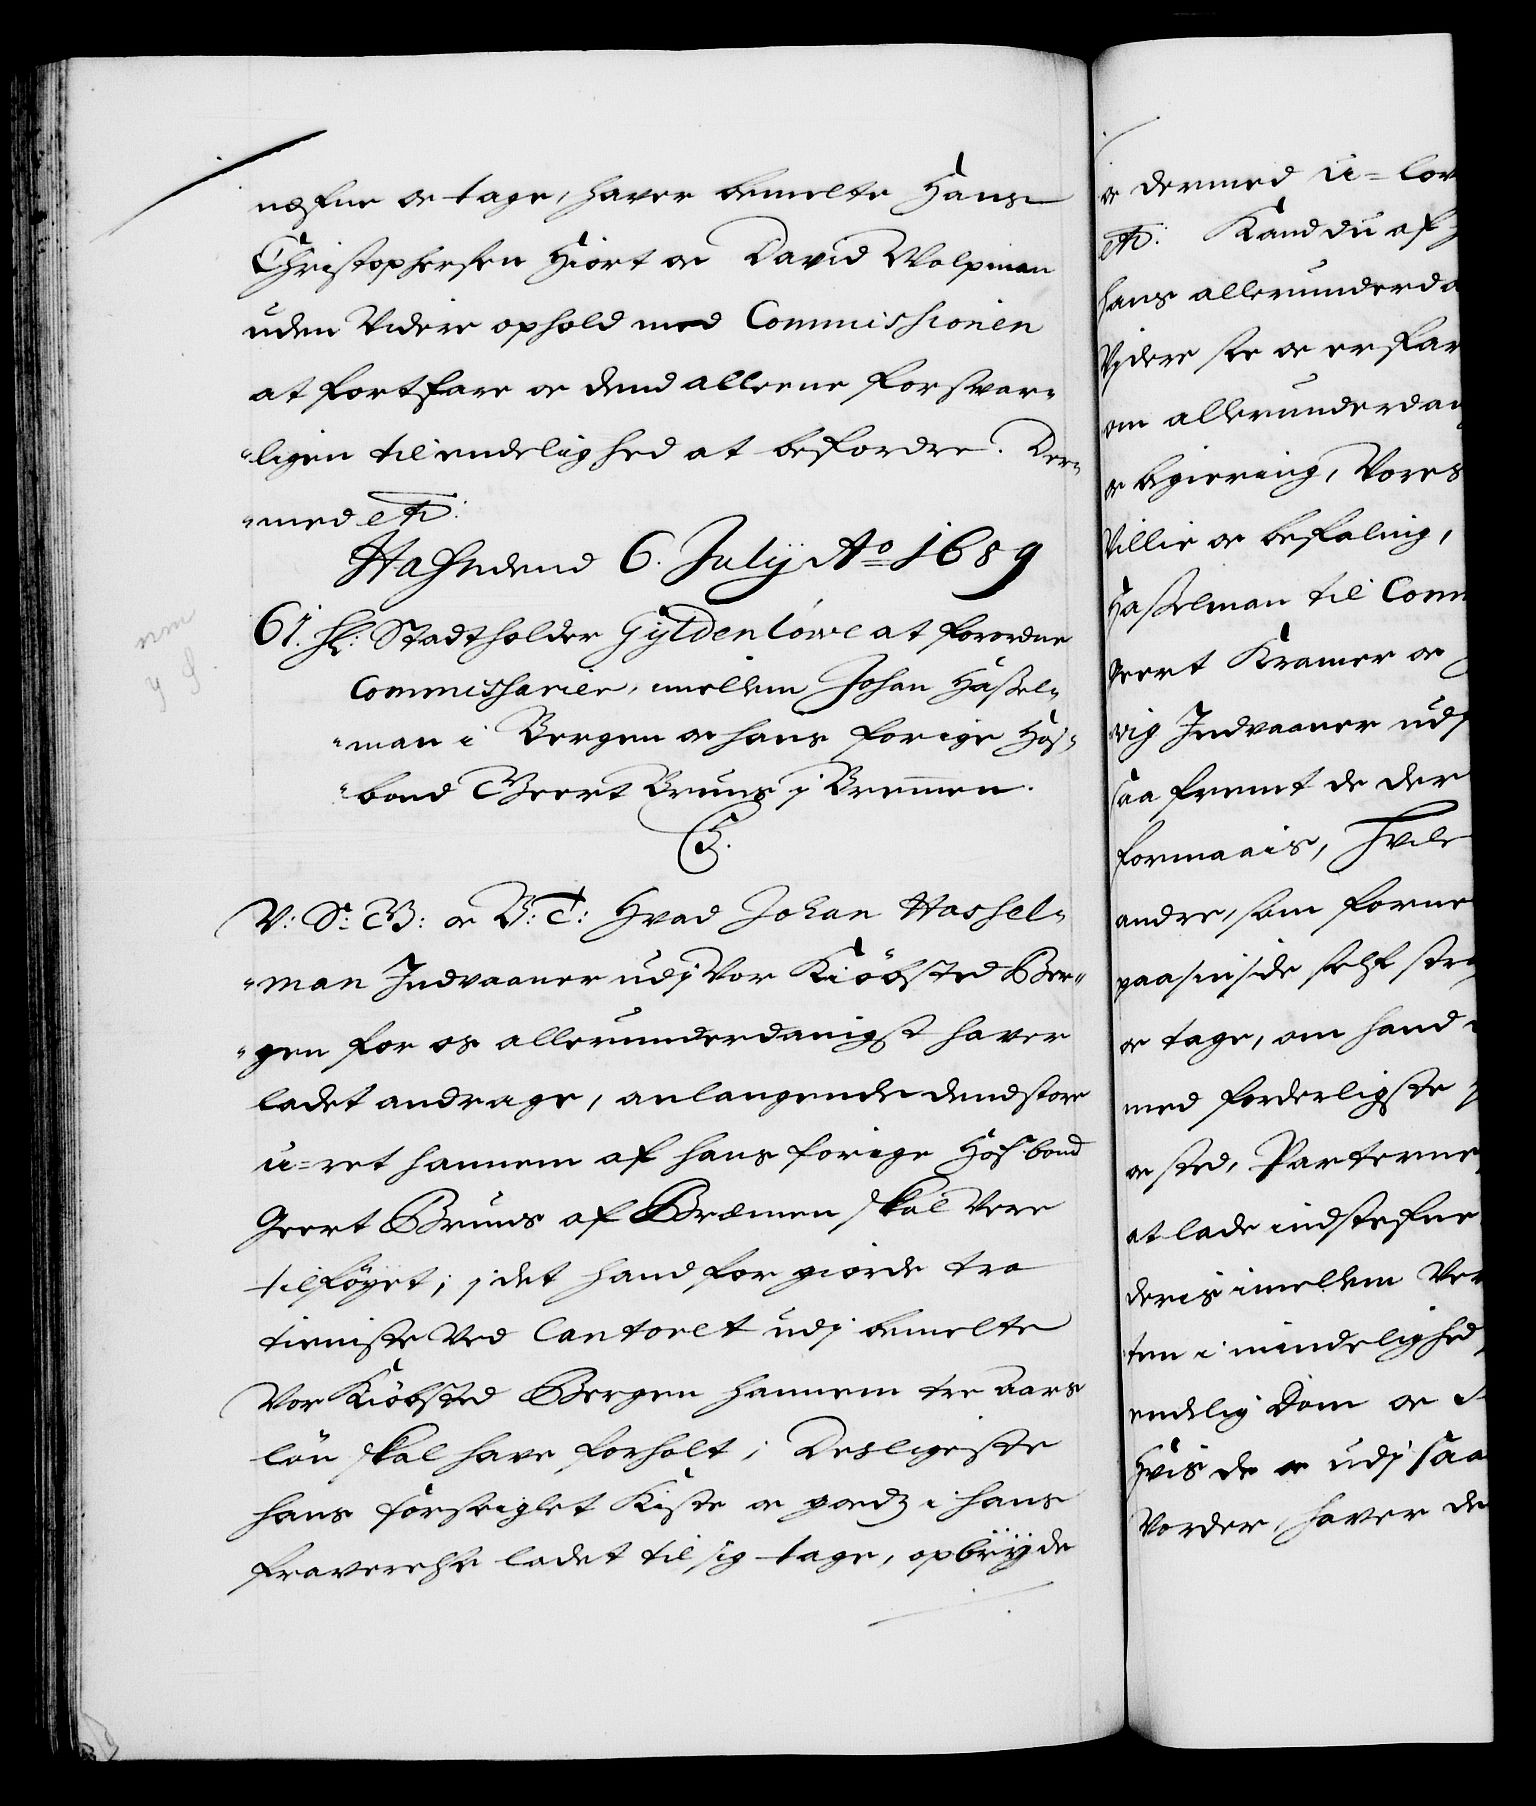 nefne oc tage, haver bemelte Hans
Christophersen Hiort oc David Wolpman
uden Videre ophold med Commissionen
at fortfare oc dend alleene forsvar-
"ligen til endelighed at befordre. Der-
"med etc:
Hafndend 6. Julij Ao 1689
61. Hr: Stadtholder Gyldenlöwe at forordne
Commissarier, imellem Johan Hassel-
"man i Bergen oc hans forige Hos-
"bond Geert Bruns i Bremmen.
C5.
V: Sr: G: oc B: T: Hvad Johan Hassel-
"man Indvaaner udj Vor Kiöbsted Ber-
"gen for os allerunderdanigst haver
ladet andrage, anlangende dend store
u-ret hannem af hans forige Hosbond
Geert Bruns af Bræmen skal Vere
tilföyet, i det hand for giorde tro
tieniste Ved Cantoret udj bemelte
Vor Kiöbsted Bergen hannem tre Aars
lön skal have forholt; Desligeste
hans forseiglet Kiste oc goedz i hans
fraverelse ladet til sig tage, opbryde
oc dermed u-lov
etc: Kand du af
hans allerunderda
Videre see oc erfar
om allerunderdan
oc begiering, Vores
Villie oc befaling,
Hasselman til Com
Geert Kramer oc
vig Indvaaner udj
saa fremt de der
formaais, Hvile
andre, som forne
paa sin side self
oc tage, om hand
med forderligste
oc sted, Parterne
at lade indstefne
deris imellem Ver
ten i mindelighed
endelig Dom oc
Hvis de oc udj saa
Vorder, haver de